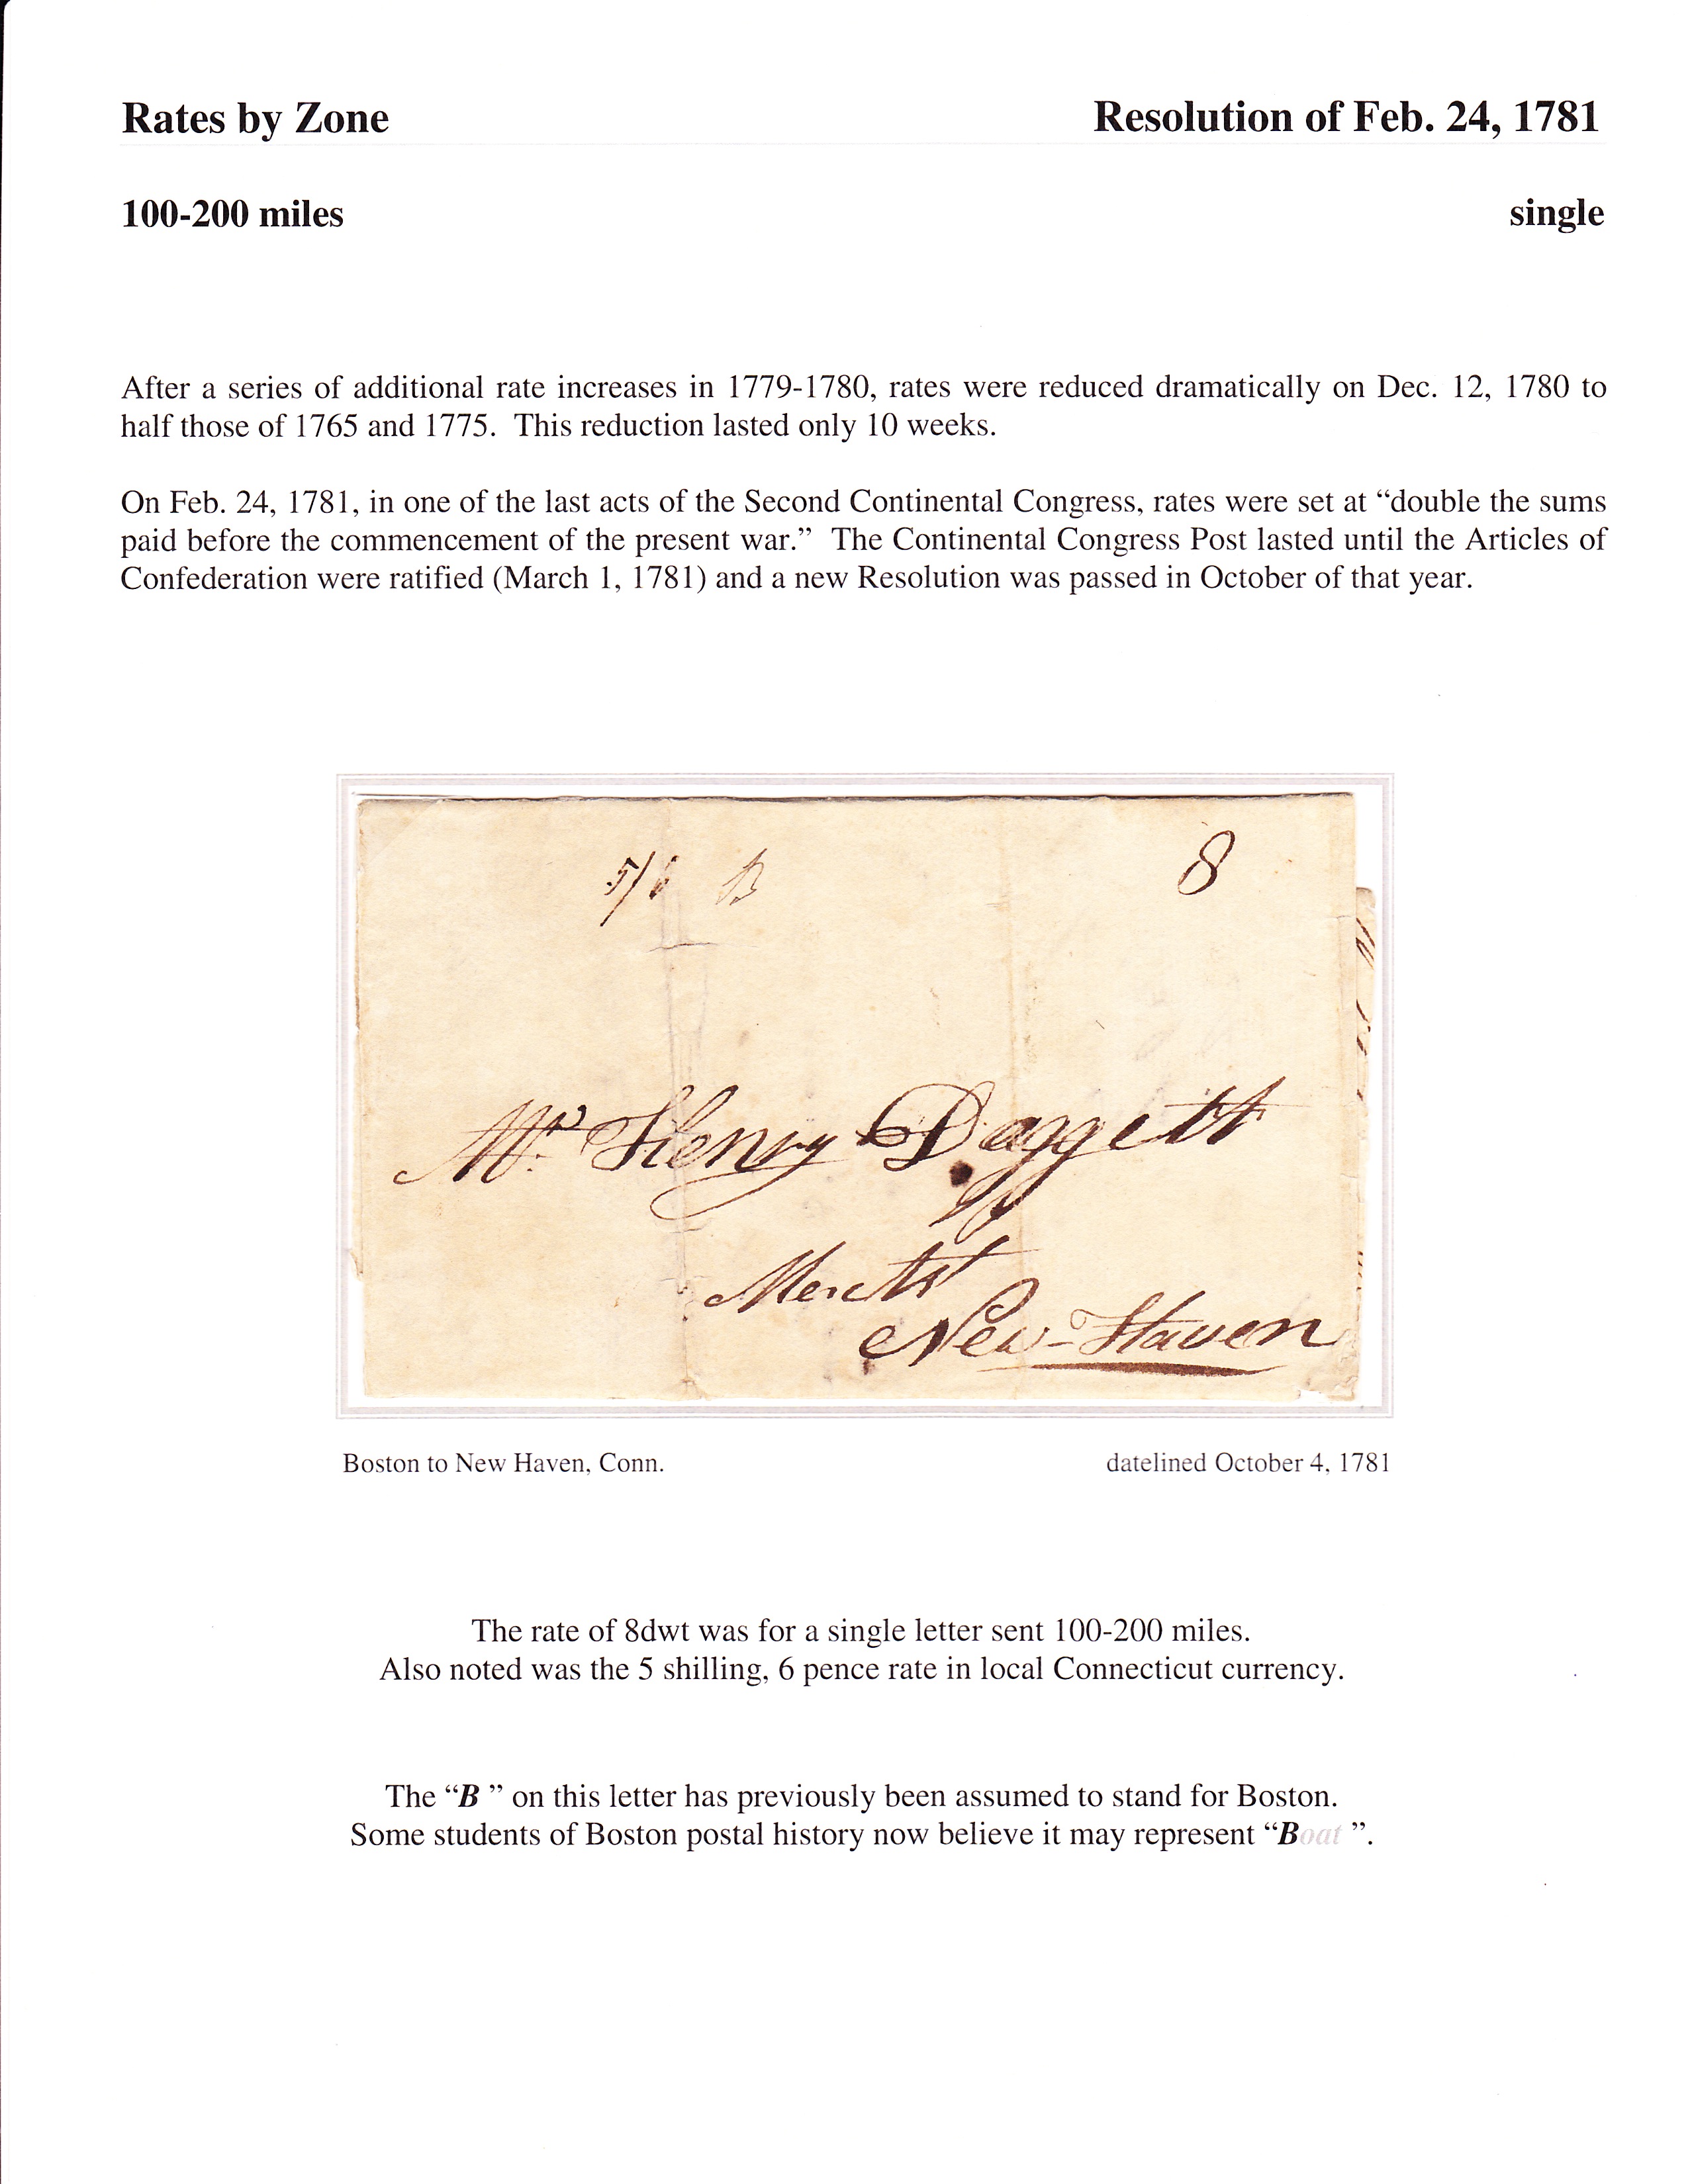 Rates by Zone Resolution of Feb. 24, 1781
100-200 miles single
After a series of additional rate increases in 1779-1780, rates were reduced dramatically on Dec. 12, 1780 to
half those of 1765 and 1775. This reduction lasted only 10 weeks.
On Feb. 24, 1781, in one of the last acts of the Second Continental Congress, rates were set at “double the sums
paid before the commencement of the present war.” The Continental Congress Post lasted until the Articles of
Confederation were ratified (March 1, 1781) and a new Resolution was passed in October of that year.
5/6 B 8
Mr. Henry Daggett
Mercht
New-Haven
Boston to New Haven, Conn. datelined October 4, 1781
The rate of 8dwt was for a single letter sent 100-200 miles.
Also noted was the 5 shilling, 6 pence rate in local Connecticut currency.
The “B ” on this letter has previously been assumed to stand for Boston.
Some students of Boston postal history now believe it may represent “Boat ”.